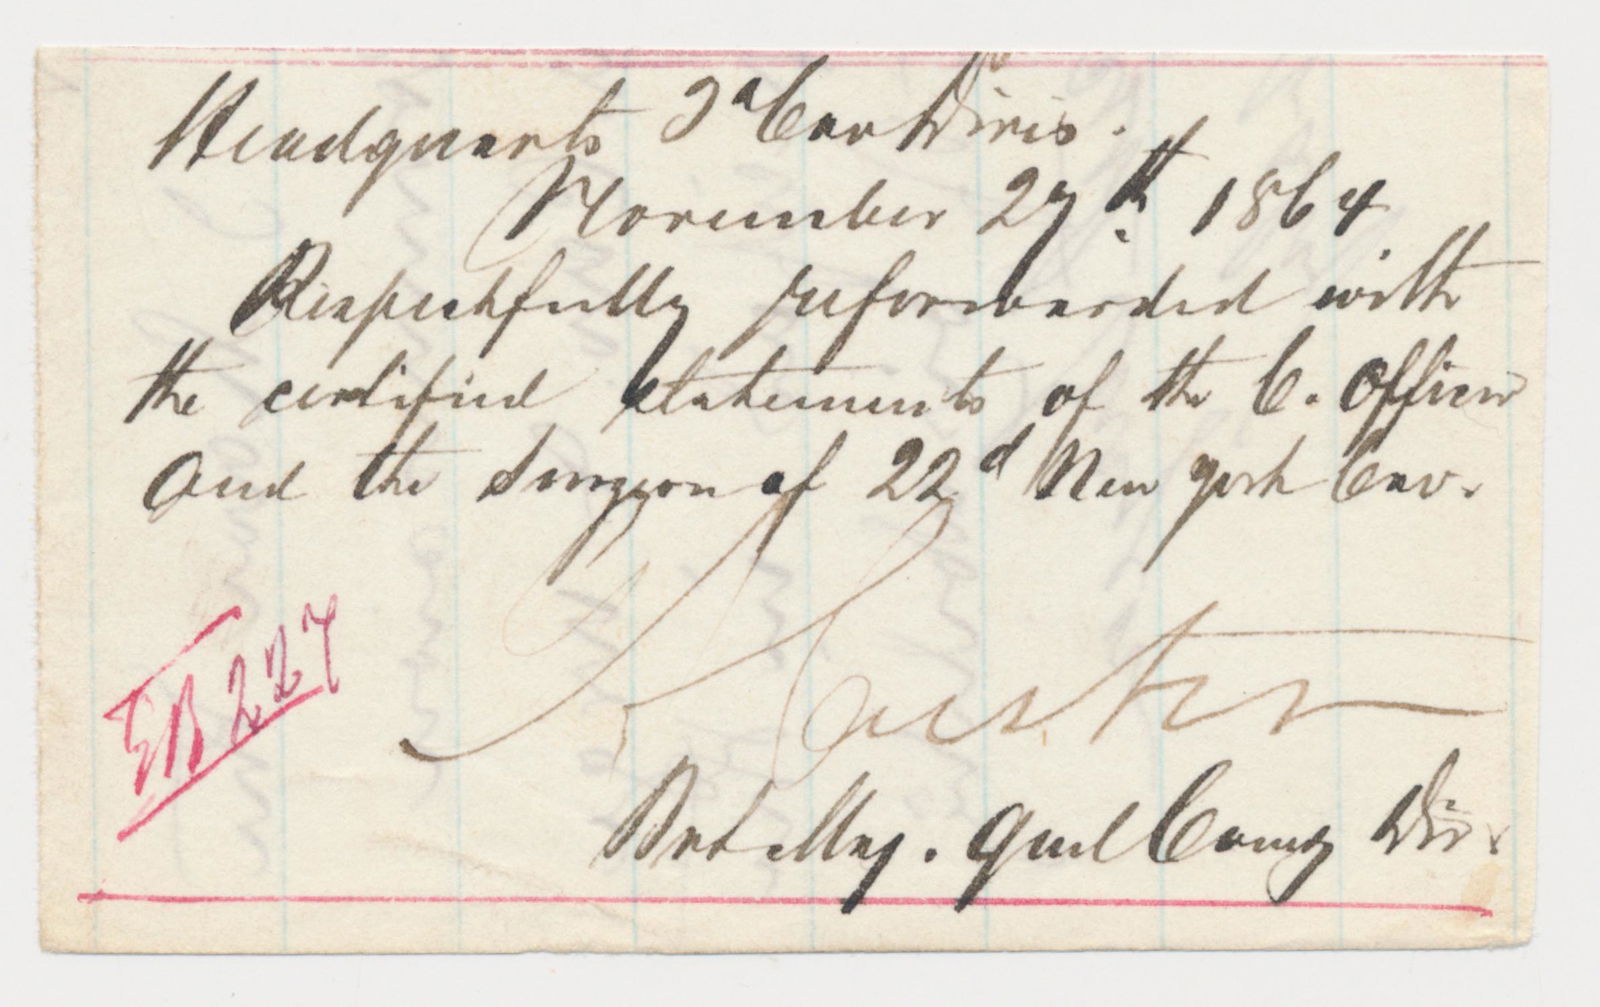 Headquarts 3d Cav Divis.
November 27th. 1864
Respectfully reforwarded with
the certified statements of the C. Officer
and the Surgeon of 22d New York Cav.
G A Custer
Bvt Maj. Genl Comg Div.
EB 227